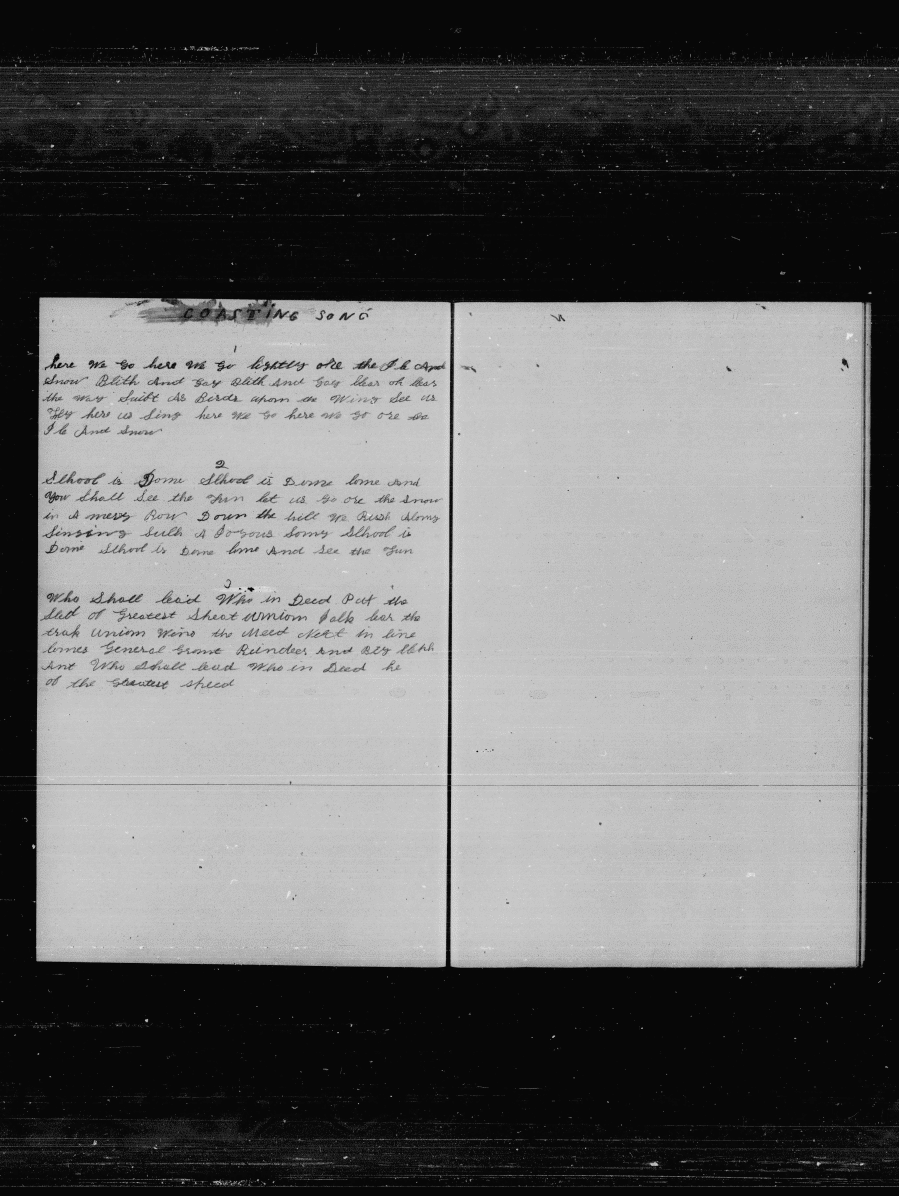 COASTING SONG
1
here We Go here We Go lightly ore the Ice And
Snow Blith And Gay Blith And Gay clear oh clear
the way Swift As Birds upon the Wing See us
Fly here us Sing here We Go here We Go ore the
Ice And Snow
2
School is Done School is Done come And
You Shall See the Fun let us Go ore the Snow
in A merry Row Down the hill We Rush Along
Singing Such A Joyous Song School is
Done School is Done come And See the Fun
3
Who Shall lead Who in Deed Put the
Sled of Greatest Union Jack clear the
trak Union Wins the Meed Next in line
comes General Grant Reindeer And Big
Ant Who Shall lead Who in Deed he
of the Greatest speed